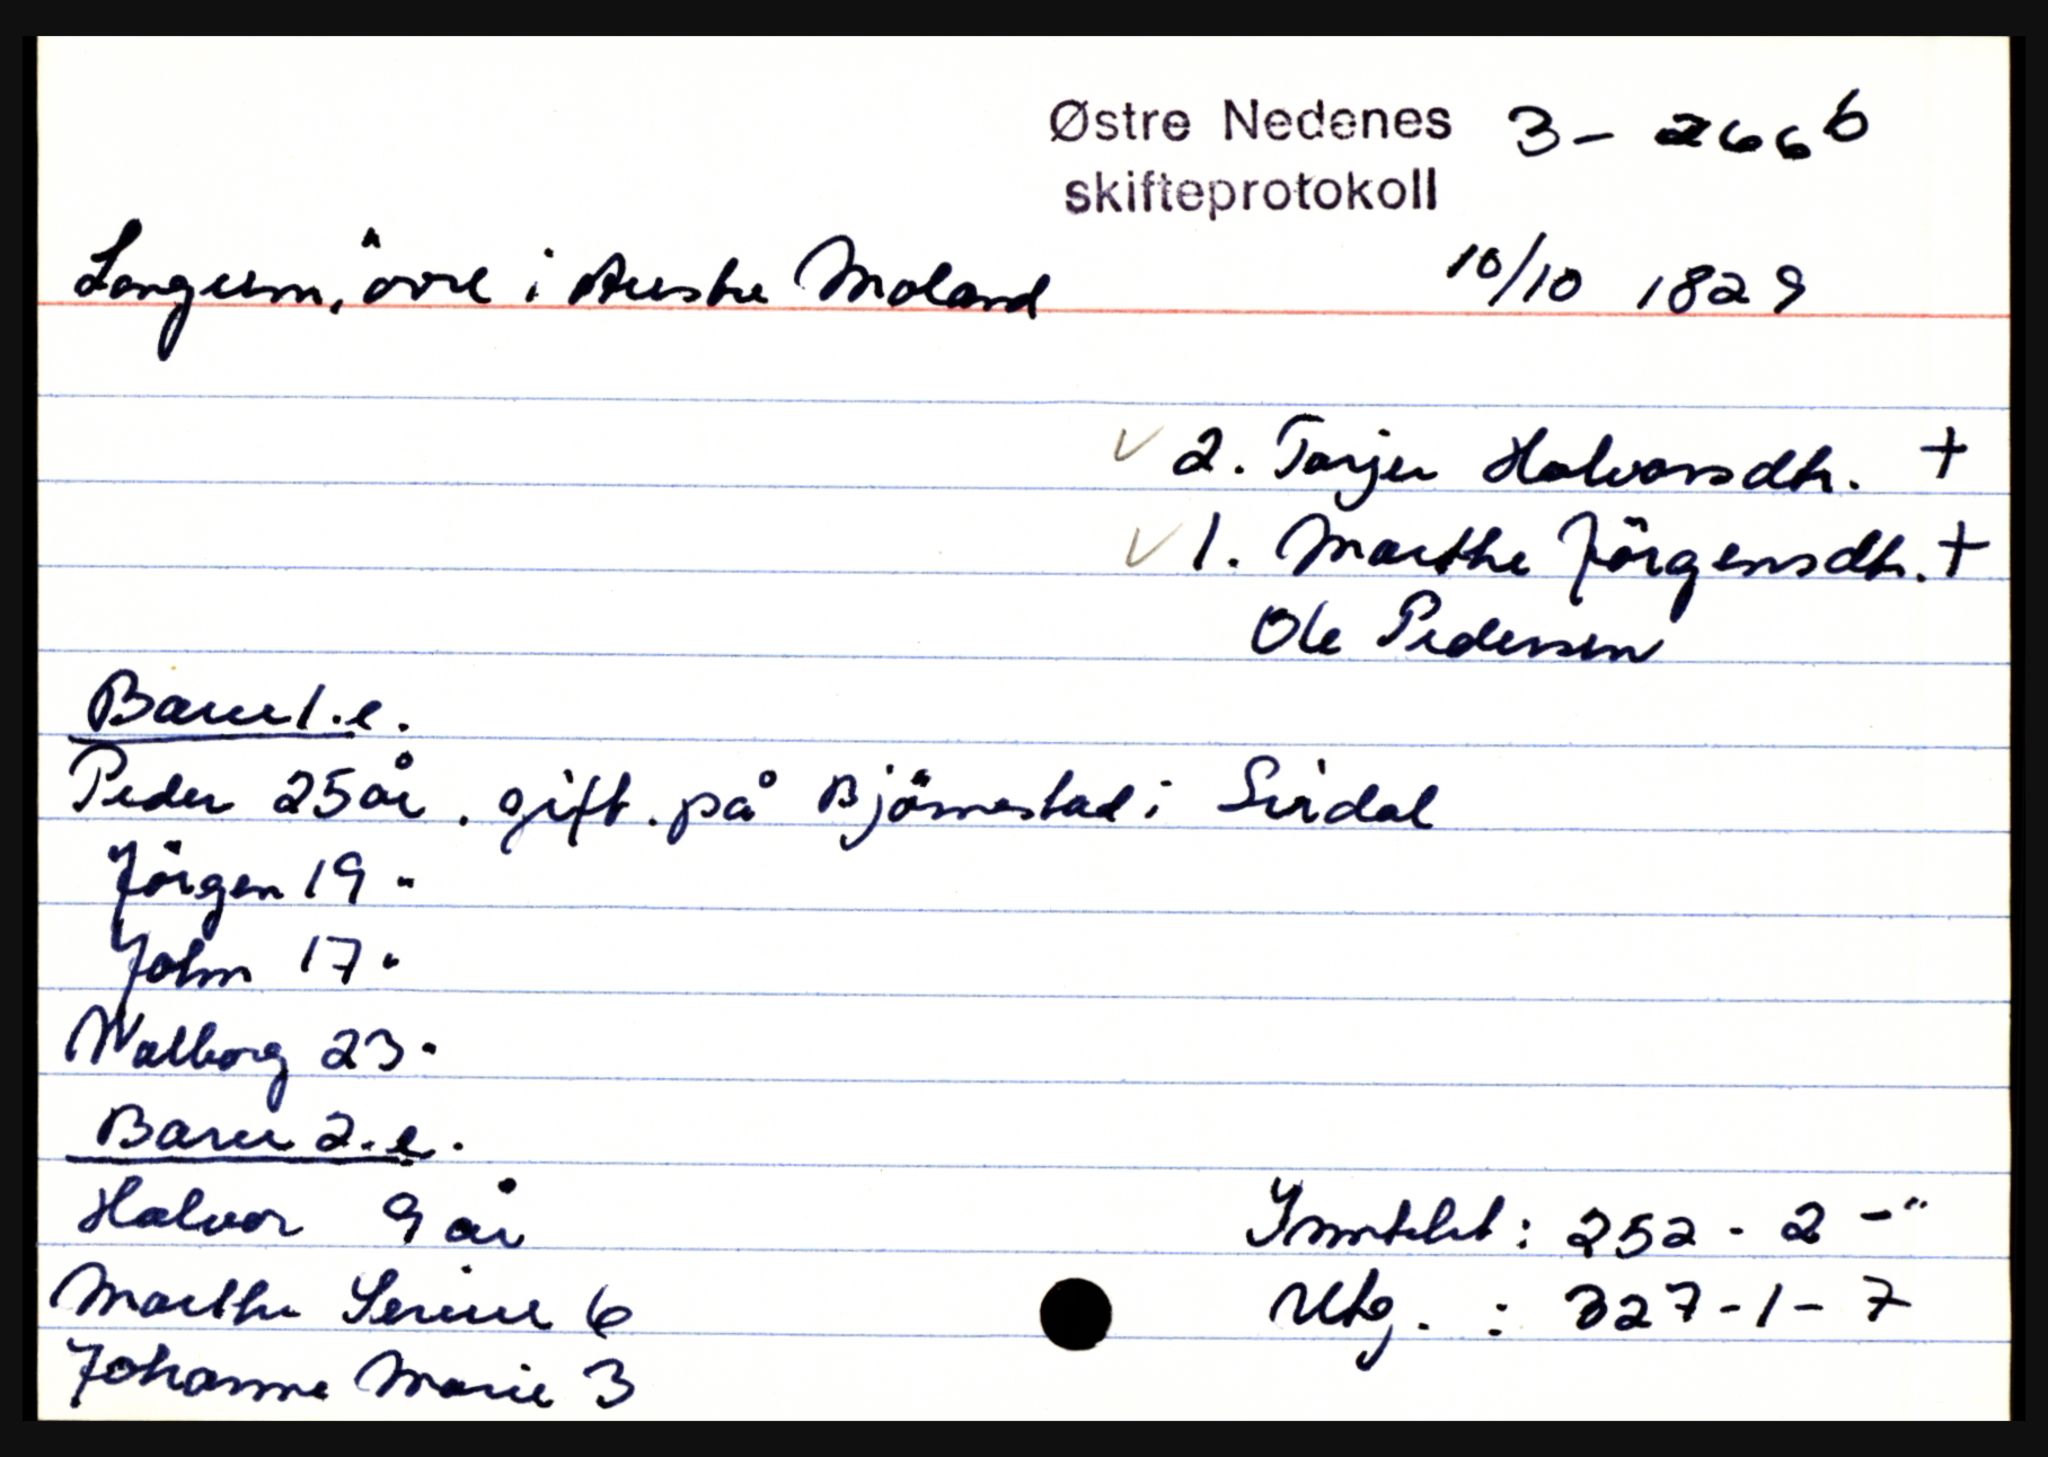 Østre Nedenes 3 – 266 b
skifteprotokoll
Langum, övre i Austre Moland 10/10 1829
✓ 2. Tarjer Halvorsdtr. +
✓ 1. Marthe Jörgensdtr. +
Ole Pedersen
Barn 1. e.
Peder 25 år. gift. på Björnestad i Sirdal
Jörgen 19 "
John 17 "
Walborg 23 "
Barn 2. e.
Halvor 9 år
Marthe Serine 6
Johanne Marie 3
Inntekt: 252 - 2 - "
Utg. : 327 - 1 - 7